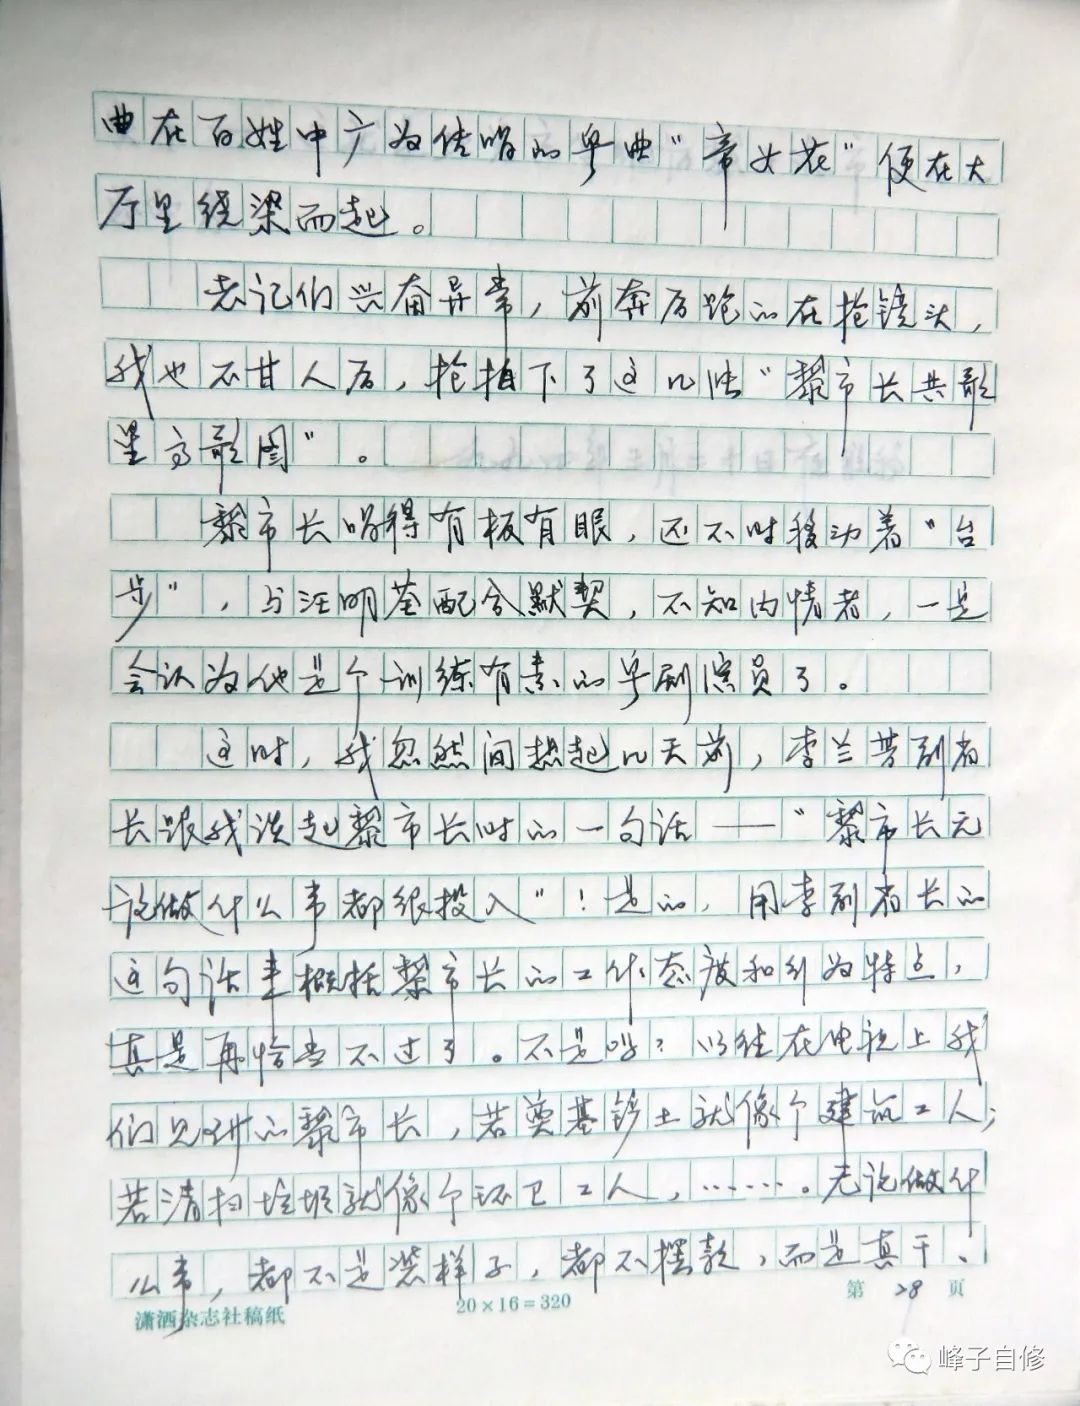 曲在百姓中广为传唱的粤曲“帝女花”便在大
厅里绕梁而起。
老记们兴奋异常，前奔后跑的在抢镜头，
我也不甘人后，抢拍下了这几张“黎市长共歌
星高歌图”。
黎市长唱得有板有眼，还不时移动着“台
步”，与汪明荃配合默契，不知内情者，一定
会认为他是个训练有素的粤剧演员了。
这时，我忽然间想起几天前，李兰芳副省
长跟我谈起黎市长时的一句话——“黎市长无
论做什么事都很投入”！是的，用李副省长的
这句话来概括黎市长的工作态度和行为特点，
真是再恰当不过了。不是吗？以往在电视上我
们见到的黎市长，若奠基铲土就像个建筑工人；
若清扫垃圾就像个环卫工人，……。无论做什
么事，都不是装样子，都不摆款，而是真干、
潇洒杂志社稿纸
20×16=320
第 28 页
峰子自修